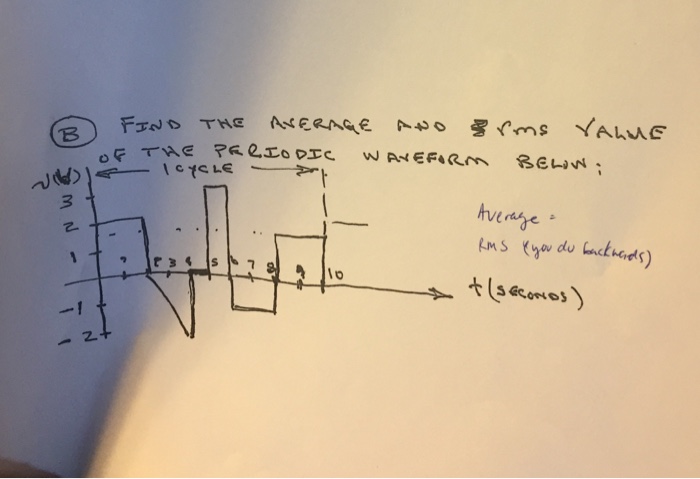 B FIND THE AVERAGE AND rms VALUE
OF THE PERIODIC WAVEFORM BELOW:
1 CYCLE
3
2
1
-1
-2
3 4 5 7 8 9 10
t (SECONDS)
Average =
RMS (you do backwards)